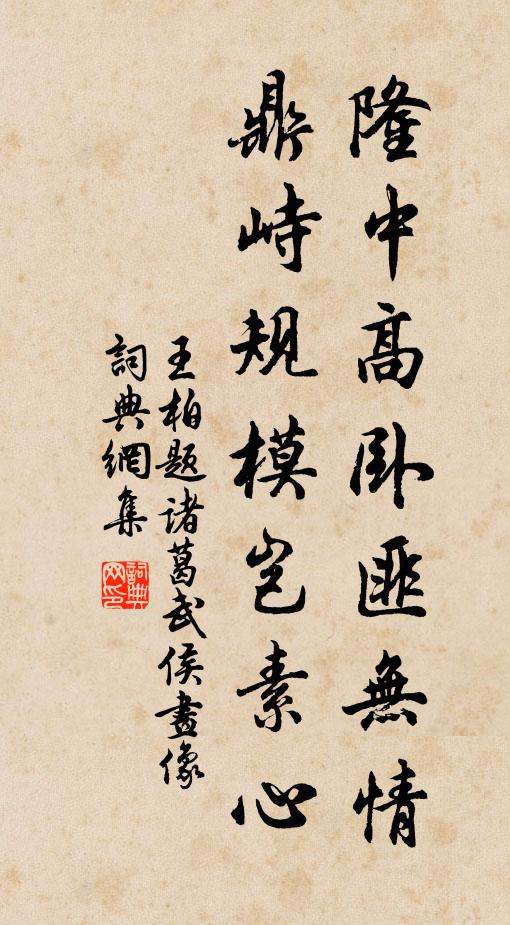 隆中高卧匪無情
鼎峙規模豈素心
王柏題诸葛武侯畫像
詞典網集
詞典网印